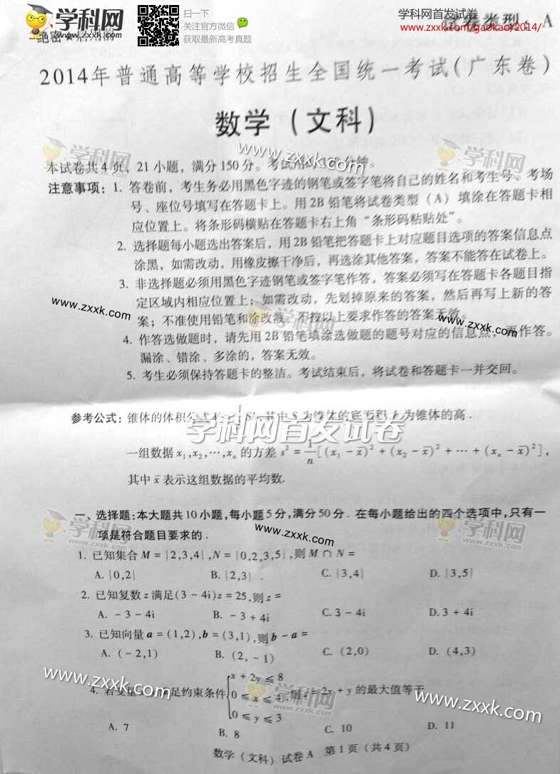 学科网
www.zxxk.com
扫一下
关注官方微信
获取最新高考真题
学科网首发试卷
www.zxxk.com/gaokao/2014/
试卷类型：A
2014年普通高等学校招生全国统一考试（广东卷）
数学（文科）
www.zxxk.com
学科网
本试卷共4页，21小题，满分150分。考试用
注意事项：1. 答卷前，考生务必用黑色字迹的钢笔或签字笔将自己的姓名和考生号、考场
号、座位号填写在答题卡上。用2B铅笔将试卷类型（A）填涂在答题卡相
应位置上。将条形码横贴在答题卡右上角“条形码粘贴处”。
2. 选择题每小题选出答案后，用2B铅笔把答题卡上对应题目选项的答案信息点
涂黑，如需改动，用橡皮擦干净后，再选涂其他答案，答案不能答在试卷上。
3. 非选择题必须用黑色字迹钢笔或签字笔作答，答案必须写在答题卡各题目指
定区域内相应位置上；如需改动，先划掉原来的答案，然后再写上新的答
案；不准使用铅笔和涂改液。不按以上要求作答的答案无效。
4. 作答选做题时，请先用2B铅笔填涂选做题的题号对应的信息点，再作答。
漏涂、错涂、多涂的，答案无效。
5. 考生必须保持答题卡的整洁。考试结束后，将试卷和答题卡一并交回。
www.zxxk.com
www.zxxk.com
学科网
参考公式：锥体的体积公式 其中S为锥体的底面积 为锥体的高.
学科网首发试卷
一组数据x₁,x₂,…,xₙ的方差s²=1/n[(x₁-x̄)²+(x₂-x̄)²+…+(xₙ-x̄)²],
其中x̄表示这组数据的平均数.
一、选择题：本大题共10小题，每小题5分，满分50分．在每小题给出的四个选项中，只有一
项是符合题目要求的．
学科网
www.zxxk.com
学科网
1. 已知集合M={2,3,4},N={0,2,3,5},则M∩N=
A. {0,2} B. {2,3} C. {3,4} D. {3,5}
2. 已知复数z满足(3-4i)z=25,则z=
A. -3-4i B. -3+4i C. 3-4i D. 3+4i
3. 已知向量a=(1,2),b=(3,1),则b-a=
A. (-2,1) B. (2,-1) C. (2,0) D. (4,3)
www.zxxk.com
www.zxxk.com
学科网
x+2y≤8
4. 若变量 足约束条件 0≤x≤4, 则z=2x+y的最大值等于
0≤y≤3
A. 7 B. 8 C. 10 D. 11
数学（文科）试卷A 第1页（共4页）